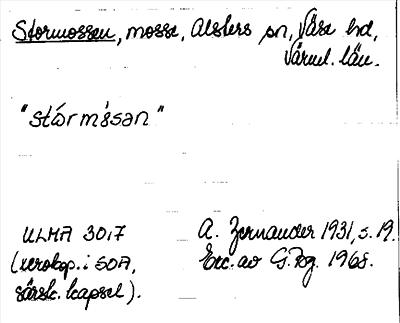 Stormossen, mosse, Alsters sn, Väse hd,
Värml. län.
"stórmʹåsan"
ULMA 3017
(xerokop. i SOA,
särsk. kapsel).
A. Zernander 1931, s. 19.
Exc. av G. Bg. 1968.